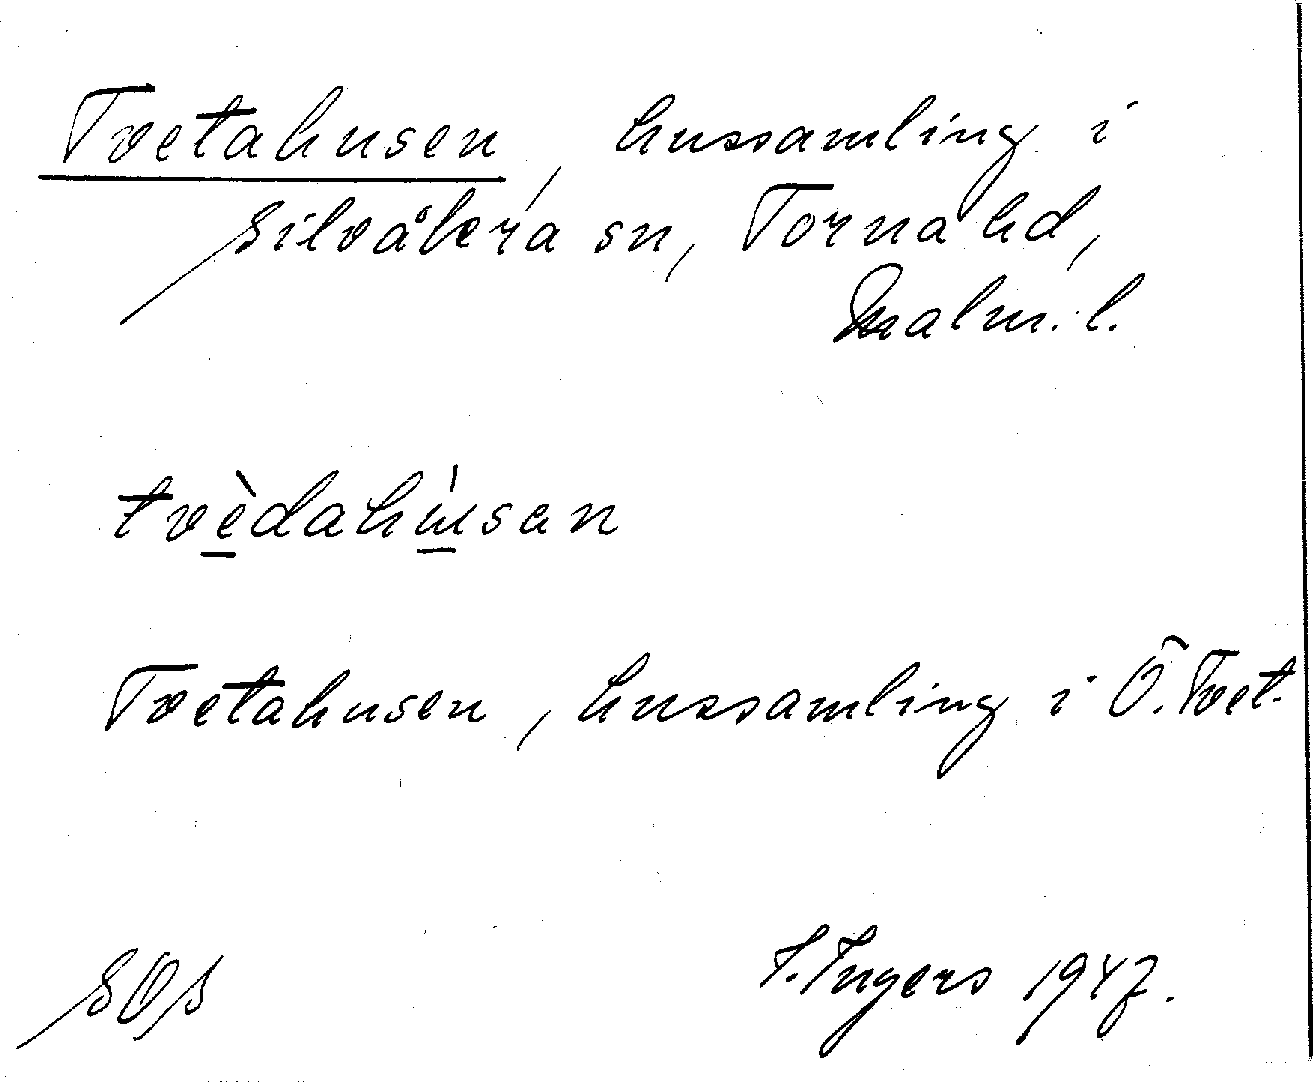 Tvetahusen, hussamling i
Silvåkra sn, Torna hd,
Malm. l.
tvèdahúsan
Tvetahusen, hussamling i Ö. Tvet.
SOS
I. Ingers 1947.